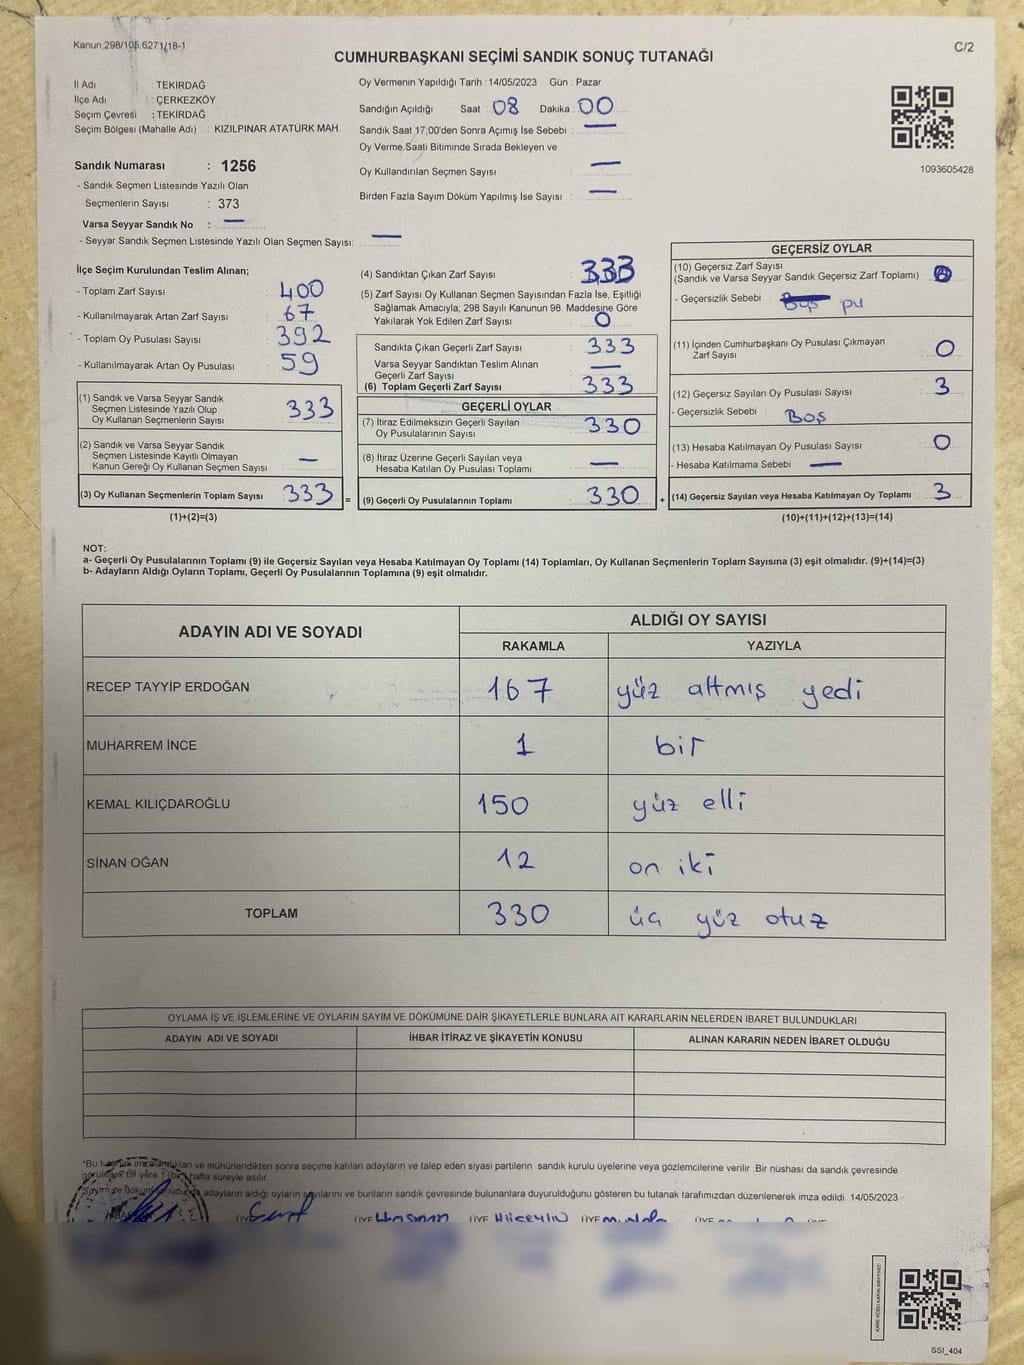 Kanun:298/105.6271/18-1
C/2
CUMHURBAŞKANI SEÇİMİ SANDIK SONUÇ TUTANAĞI
İl Adı : TEKİRDAĞ
İlçe Adı : ÇERKEZKÖY
Seçim Çevresi : TEKİRDAĞ
Seçim Bölgesi (Mahalle Adı) : KIZILPINAR ATATÜRK MAH.
Sandık Numarası : 1256
- Sandık Seçmen Listesinde Yazılı Olan
Seçmenlerin Sayısı : 373
Varsa Seyyar Sandık No : —
- Seyyar Sandık Seçmen Listesinde Yazılı Olan Seçmen Sayısı: —
Oy Vermenin Yapıldığı Tarih : 14/05/2023 Gün : Pazar
Sandığın Açıldığı Saat : 08 Dakika : 00
Sandık Saat 17,00'den Sonra Açımış İse Sebebi : —
Oy Verme Saati Bitiminde Sırada Bekleyen ve
Oy Kullandırılan Seçmen Sayısı : —
Birden Fazla Sayım Döküm Yapılmış İse Sayısı : —
1093605428
İlçe Seçim Kurulundan Teslim Alınan;
- Toplam Zarf Sayısı : 400
- Kullanılmayarak Artan Zarf Sayısı : 67
- Toplam Oy Pusulası Sayısı : 392
- Kullanılmayarak Artan Oy Pusulası : 59
(1) Sandık ve Varsa Seyyar Sandık
Seçmen Listesinde Yazılı Olup
Oy Kullanan Seçmenlerin Sayısı : 333
(2) Sandık ve Varsa Seyyar Sandık
Seçmen Listesinde Kayıtlı Olmayan
Kanun Gereği Oy Kullanan Seçmen Sayısı : —
(3) Oy Kullanan Seçmenlerin Toplam Sayısı : 333 =
(1)+(2)=(3)
(4) Sandıktan Çıkan Zarf Sayısı : 333
(5) Zarf Sayısı Oy Kullanan Seçmen Sayısından Fazla İse, Eşitliği
Sağlamak Amacıyla; 298 Sayılı Kanunun 98. Maddesine Göre
Yakılarak Yok Edilen Zarf Sayısı : 0
Sandıkta Çıkan Geçerli Zarf Sayısı : 333
Varsa Seyyar Sandıktan Teslim Alınan
Geçerli Zarf Sayısı : —
(6) Toplam Geçerli Zarf Sayısı : 333
GEÇERLİ OYLAR
(7) İtiraz Edilmeksizin Geçerli Sayılan
Oy Pusulalarının Sayısı : 330
(8) İtiraz Üzerine Geçerli Sayılan veya
Hesaba Katılan Oy Pusulası Toplamı : —
(9) Geçerli Oy Pusulalarının Toplamı : 330 +
GEÇERSİZ OYLAR
(10) Geçersiz Zarf Sayısı
(Sandık ve Varsa Seyyar Sandık Geçersiz Zarf Toplamı) :
- Geçersizlik Sebebi :
(11) İçinden Cumhurbaşkanı Oy Pusulası Çıkmayan
Zarf Sayısı : 0
(12) Geçersiz Sayılan Oy Pusulası Sayısı : 3
- Geçersizlik Sebebi : Boş
(13) Hesaba Katılmayan Oy Pusulası Sayısı : 0
- Hesaba Katılmama Sebebi : —
(14) Geçersiz Sayılan veya Hesaba Katılmayan Oy Toplamı : 3
(10)+(11)+(12)+(13)=(14)
NOT:
a- Geçerli Oy Pusulalarının Toplamı (9) ile Geçersiz Sayılan veya Hesaba Katılmayan Oy Toplamı (14) Toplamları, Oy Kullanan Seçmenlerin Toplam Sayısına (3) eşit olmalıdır. (9)+(14)=(3)
b- Adayların Aldığı Oyların Toplamı, Geçerli Oy Pusulalarının Toplamına (9) eşit olmalıdır.
ADAYIN ADI VE SOYADI
ALDIĞI OY SAYISI
RAKAMLA YAZIYLA
RECEP TAYYİP ERDOĞAN 167 yüz altmış yedi
MUHARREM İNCE 1 bir
KEMAL KILIÇDAROĞLU 150 yüz elli
SİNAN OĞAN 12 on iki
TOPLAM 330 üç yüz otuz
OYLAMA İŞ VE İŞLEMLERİNE VE OYLARIN SAYIM VE DÖKÜMÜNE DAİR ŞİKAYETLERLE BUNLARA AİT KARARLARIN NELERDEN İBARET BULUNDUKLARI
ADAYIN ADI VE SOYADI İHBAR İTİRAZ VE ŞİKAYETİN KONUSU ALINAN KARARIN NEDEN İBARET OLDUĞU
*Bu tutanak imzalandıktan ve mühürlendikten sonra seçime katılan adayların ve talep eden siyasi partilerin sandık kurulu üyelerine veya gözlemcilerine verilir. Bir nüshası da sandık çevresinde
görülecek bir yere 1 (bir) hafta süreyle asılır.
Sayım ve döküm sonucunda adayların aldığı oyların sayılarını ve bunların sandık çevresinde bulunanlara duyurulduğunu gösteren bu tutanak tarafımızdan düzenlenerek imza edildi. 14/05/2023
ÜYE ÜYE Hasman ÜYE Hüseyin ÜYE ÜYE ÜYE
SSI_404